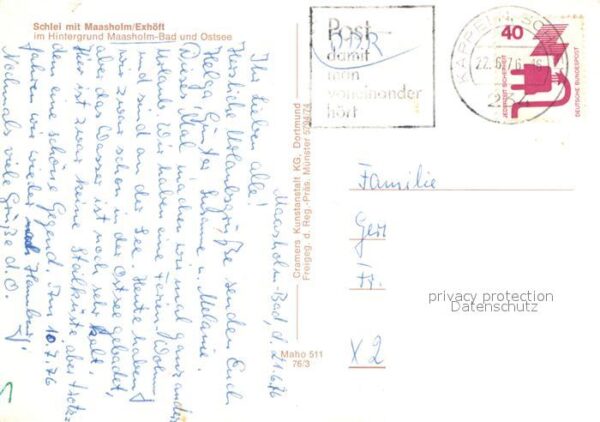 Schlei mit Maasholm/Exhöft
im Hintergrund Maasholm-Bad und Ostsee
Maasholm-Bad, d. 21.6.76
Ihr Lieben alle!
Herzliche Urlaubsgrüße senden Euch
Helga, Günter, Susanne u. Melanie.
Dieses Mal machen wir mal ganz anders
Urlaub. Wir haben eine Ferien-Wohnung
und sind an der See. Heute haben
wir zwar schon in der Ostsee gebadet,
aber das Wasser ist noch sehr kalt.
Hier ist zwar keine Steilküste, aber trotz
dem eine schöne Gegend. Am 10.7.76
fahren wir wieder nach Hamburg.
Nochmals viele Grüße d. O.
Cramers Kunstanstalt KG, Dortmund
Freigeg. d. Reg.-Präs. Münster 5794/74
Maho 511
76/3
Post
damit
man
voneinander
hört
DDR
KAPPELN, SC
22.6.76
234
40
JEDERZEIT SICHERHEIT
DEUTSCHE BUNDESPOST
Familie
Gert
Fr.
X 2
privacy protection
Datenschutz